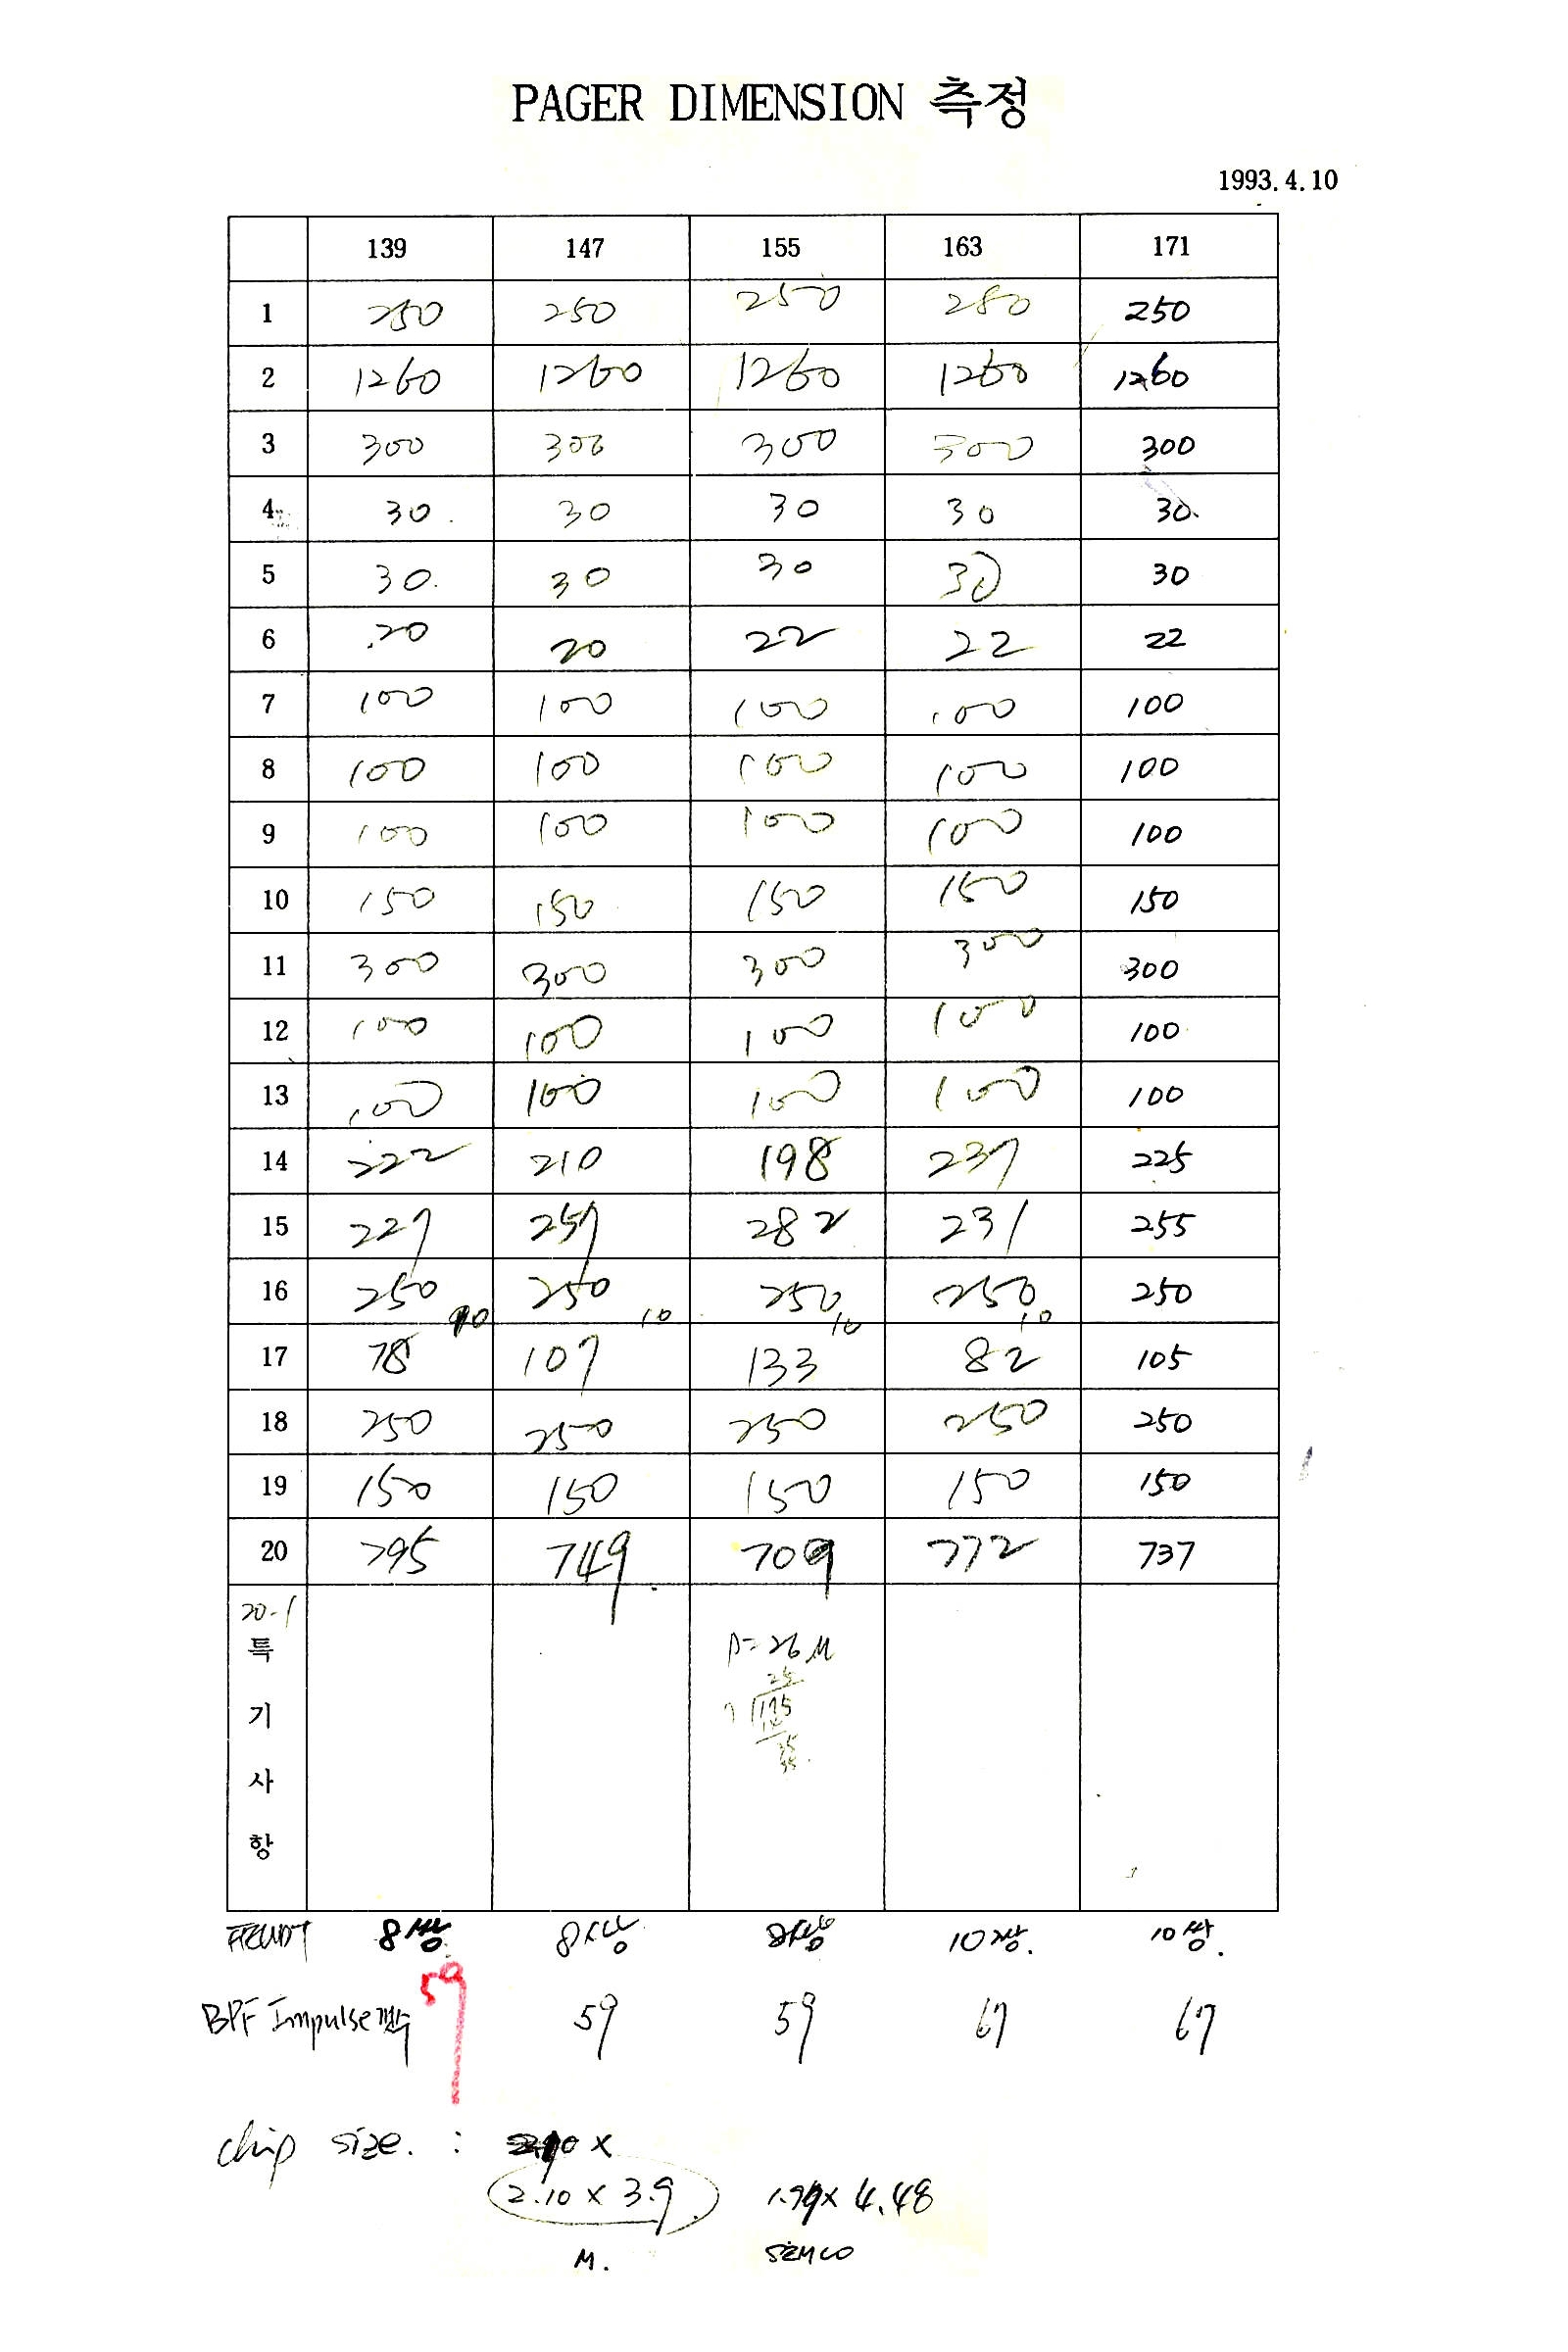 PAGER DIMENSION 측정
1993.4.10
139 147 155 163 171
1 250 250 250 280 250
2 1260 1260 1260 1260 1260
3 300 300 300 300 300
4 30 30 30 30 30
5 30 30 30 30 30
6 20 20 22 22 22
7 100 100 100 100 100
8 100 100 100 100 100
9 100 100 100 100 100
10 150 150 150 150 150
11 300 300 300 300 300
12 100 100 100 100 100
13 100 100 100 100 100
14 222 210 198 237 225
15 227 257 282 231 255
16 250 250 250 250 250
10 10 10 10
17 78 107 133 82 105
18 250 250 250 250 250
19 150 150 150 150 150
20 795 749 709 772 737
20-1
특기사항
26
25
7 175
14
35
35
8쌍 8쌍 8쌍 10쌍. 10쌍.
BPF Impulse 59 59 59 67 67
chip size. :
2.10 x 3.9 x 4.48
M. SEMCO